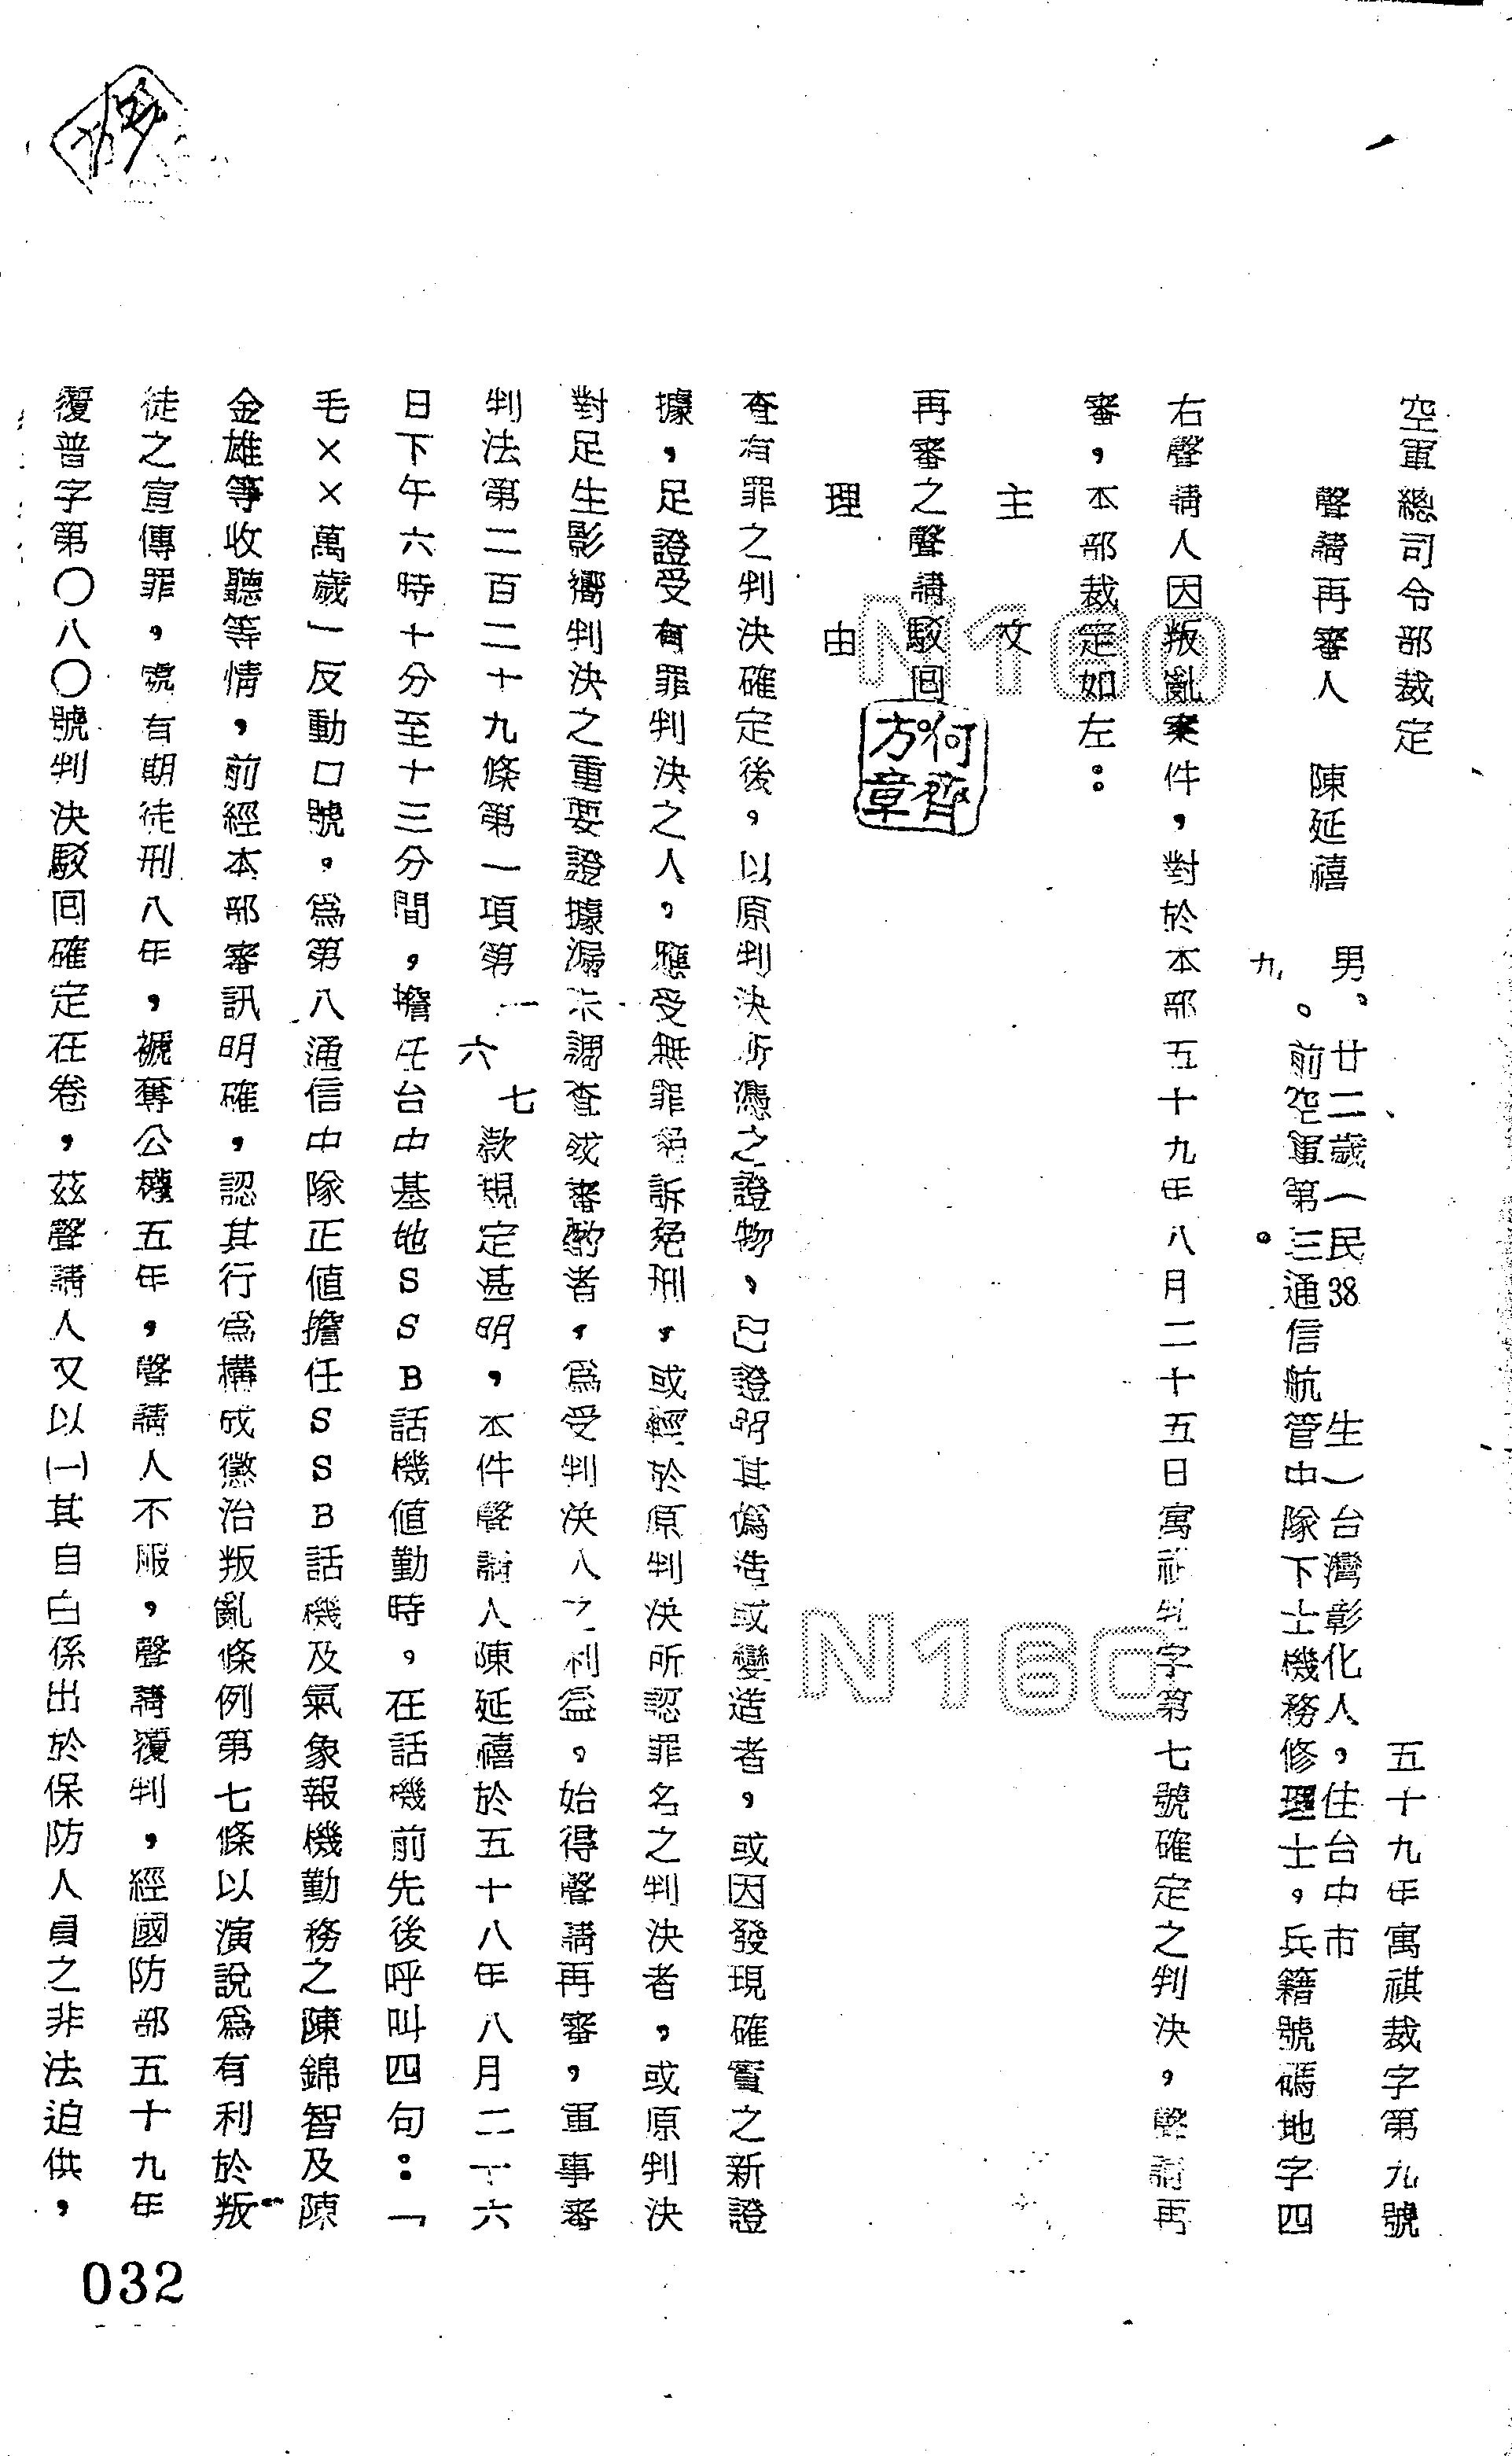 空軍總司令部裁定
五十九年寓祺裁字第九號
聲請再審人 陳延禧 男。廿二歲(民38生)台灣彰化人,住台中市
。前空軍第三通信航管中隊下士機務修理士,兵籍號碼地字四
九。
右聲請人因叛亂案件,對於本部五十九年八月二十五日寓祺判字第七號確定之判決,聲請再
審,本部裁定如左:
主文
再審之聲請駁回
何齊方章
理由
查有罪之判決確定後,以原判決所憑之證物,已證明其偽造或變造者,或因發現確實之新證
據,足證受有罪判決之人,應受無罪免訴免刑,或輕於原判決所認罪名之判決者,或原判決
對足生影響判決之重要證據漏未調查或審酌者,為受判決人之利益,始得聲請再審,軍事審
判法第二百二十九條第一項第一六七款規定甚明,本件聲請人陳延禧於五十八年八月二十六
日下午六時十分至十三分間,擔任台中基地SSB話機值勤時,在話機前先後呼叫四句:「
毛××萬歲」反動口號,為第八通信中隊正值擔任SSB話機及氣象報機勤務之陳錦智及陳
金雄等收聽等情,前經本部審訊明確,認其行為構成懲治叛亂條例第七條以演說為有利於叛
徒之宣傳罪,處有期徒刑八年,褫奪公權五年,聲請人不服,聲請覆判,經國防部五十九年
覆普字第〇八〇號判決駁回確定在卷,茲聲請人又以(一)其自白係出於保防人員之非法迫供,
032
N160
N160